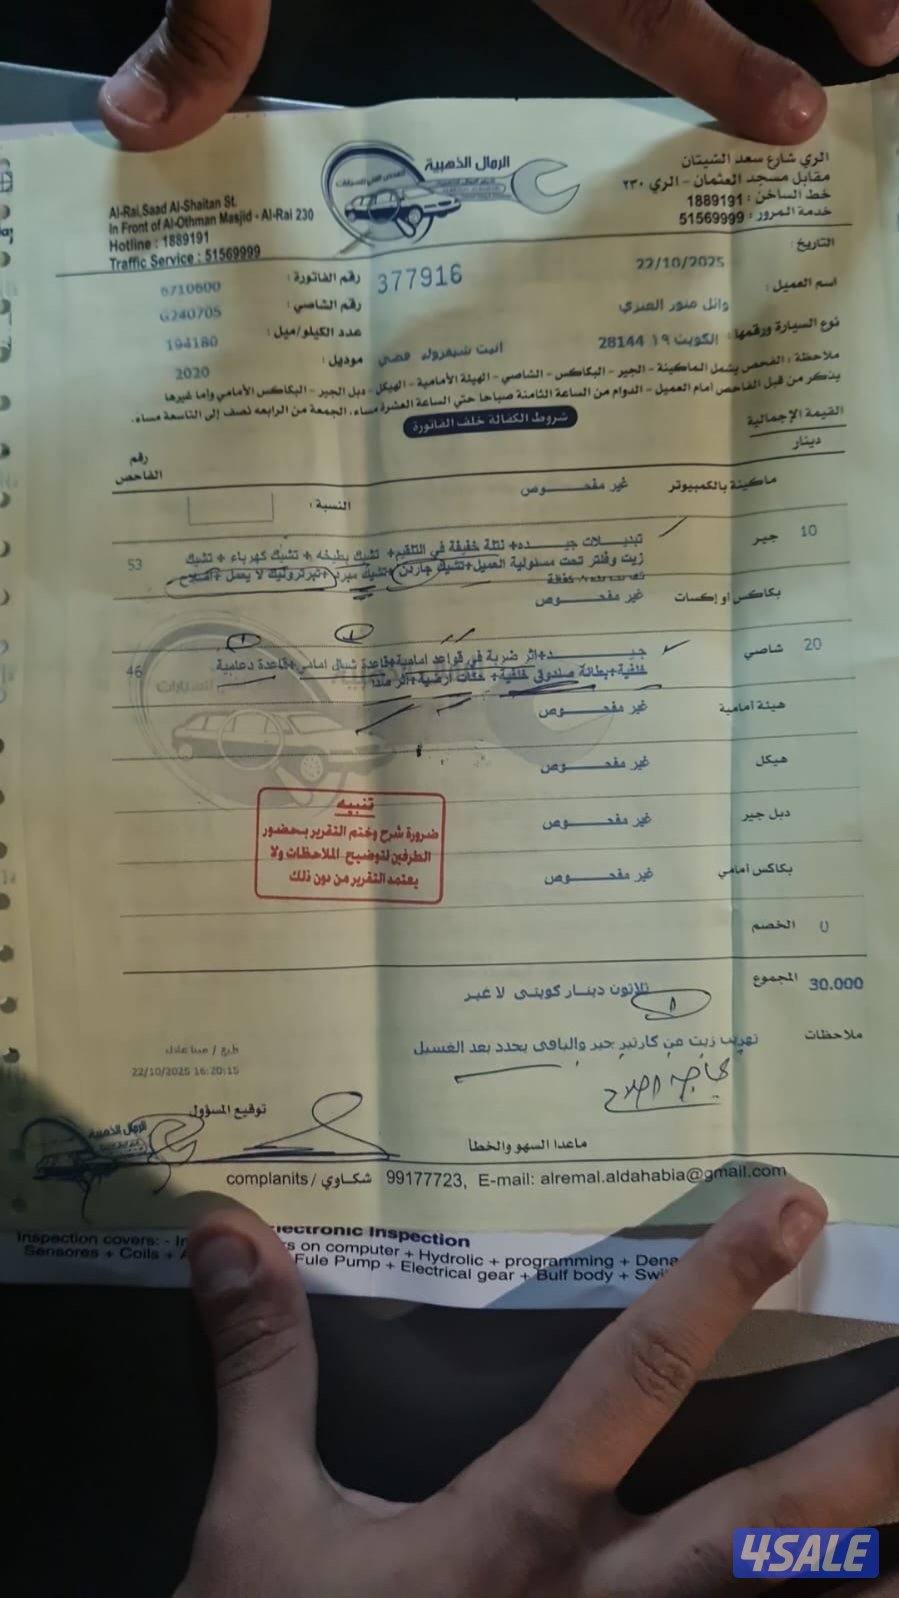 الري شارع سعد الشيتان
مقابل مسجد العثمان - الري ٢٣٠
خط الساخن : 1889191
خدمة المرور : 51569999
الرمال الذهبية
الفحص الفني للسيارات
Al-Rai,Saad Al-Shaitan St.
In Front of Al-Othman Masjid - Al-Rai 230
Hotline : 1889191
Traffic Service : 51569999
التاريخ : 22/10/2025
377916
رقم الفاتورة : 6710600
اسم العميل : وائل منور العنزي
رقم الشاصي : G240705
نوع السيارة ورقمها : الكويت ١٩ 28144 انبت شيفروليه فضي
عدد الكيلو/ميل : 194180
موديل : 2020
ملاحظة : الفحص يشمل الماكينة - الجير - البكاكس - الشاصي - الهيئة الأمامية - الهيكل - دبل الجير - البكاكس الأمامي وإما غيرها
يذكر من قبل الفاحص امام العميل - الدوام من الساعة الثامنة صباحا حتى الساعة العشرة مساء، الجمعة من الرابعه نصف إلى التاسعة مساء.
شروط الكفالة خلف الفاتورة
القيمة الإجمالية
دينار
رقم
الفاحص
ماكينة بالكمبيوتر غير مفحـــوص
النسبة :
10 جير تبديـــلات جيـــده+ نتلة خفيفة في التلقيم+ تشيك بطيخه + تشيك كهرباء + تشيك 53
زيت وفلتر تحت مسئولية العميل+تشيك جاردن +تشيك مبرد +تيرترونيك لا يعمل +اصلاح
كفالة
بكاكس أو إكسات غير مفحـــوص
20 شاصي جيـــد+اثر ضربة في قواعد امامية+قاعدة شمال امامي +قاعدة دعامية 46
خلفية+بطانة صندوق خلفية+ حكات ارضية+اثر صدا
هيئة أمامية غير مفحـــوص
هيكل غير مفحـــوص
دبل جير غير مفحـــوص
بكاكس أمامي غير مفحـــوص
تنبيه
ضرورة شرح وختم التقرير بحضور
الطرفين لتوضيح الملاحظات ولا
يعتمد التقرير من دون ذلك
0 الخصم
30.000 المجموع ثلاثون دينـار كويتي لا غير
ملاحظات تهريب زيت من كارتير جير والباقي يحدد بعد الغسيل
بحاجه اصلاح
22/10/2025 16:20:15
توقيع المسؤول
ماعدا السهو والخطأ
الرمال الذهبية
complanits / شكاوي 99177723, E-mail: alremal.aldahabia@gmail.com
lectronic Inspection
Inspection covers: - on computer + Hydrolic + programming + Dena
Sensores + Coils + Fule Pump + Electrical gear + Bulf body + Swi
4SALE